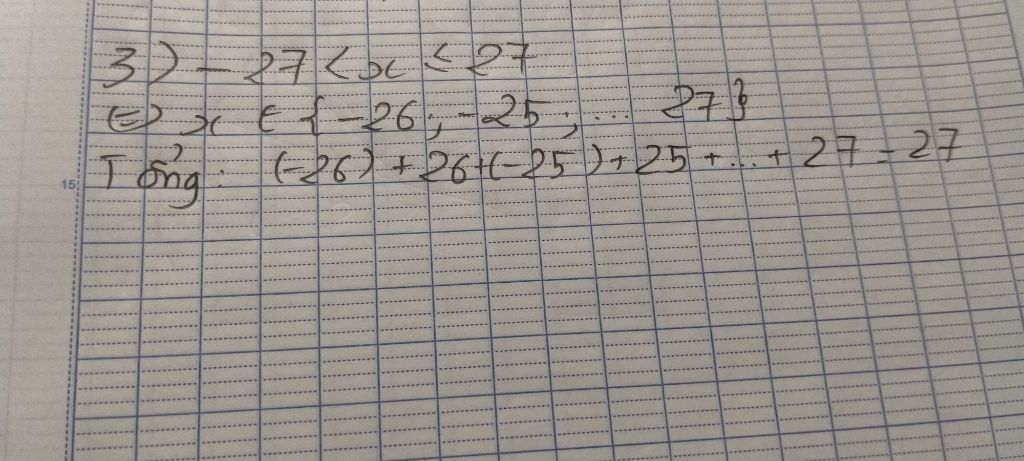 3) - 27 < x ≤ 27
⇔ x ∈ { -26 ; -25 ; ... 27 }
15 Tổng : (-26) + 26 + (-25) + 25 + ... + 27 = 27